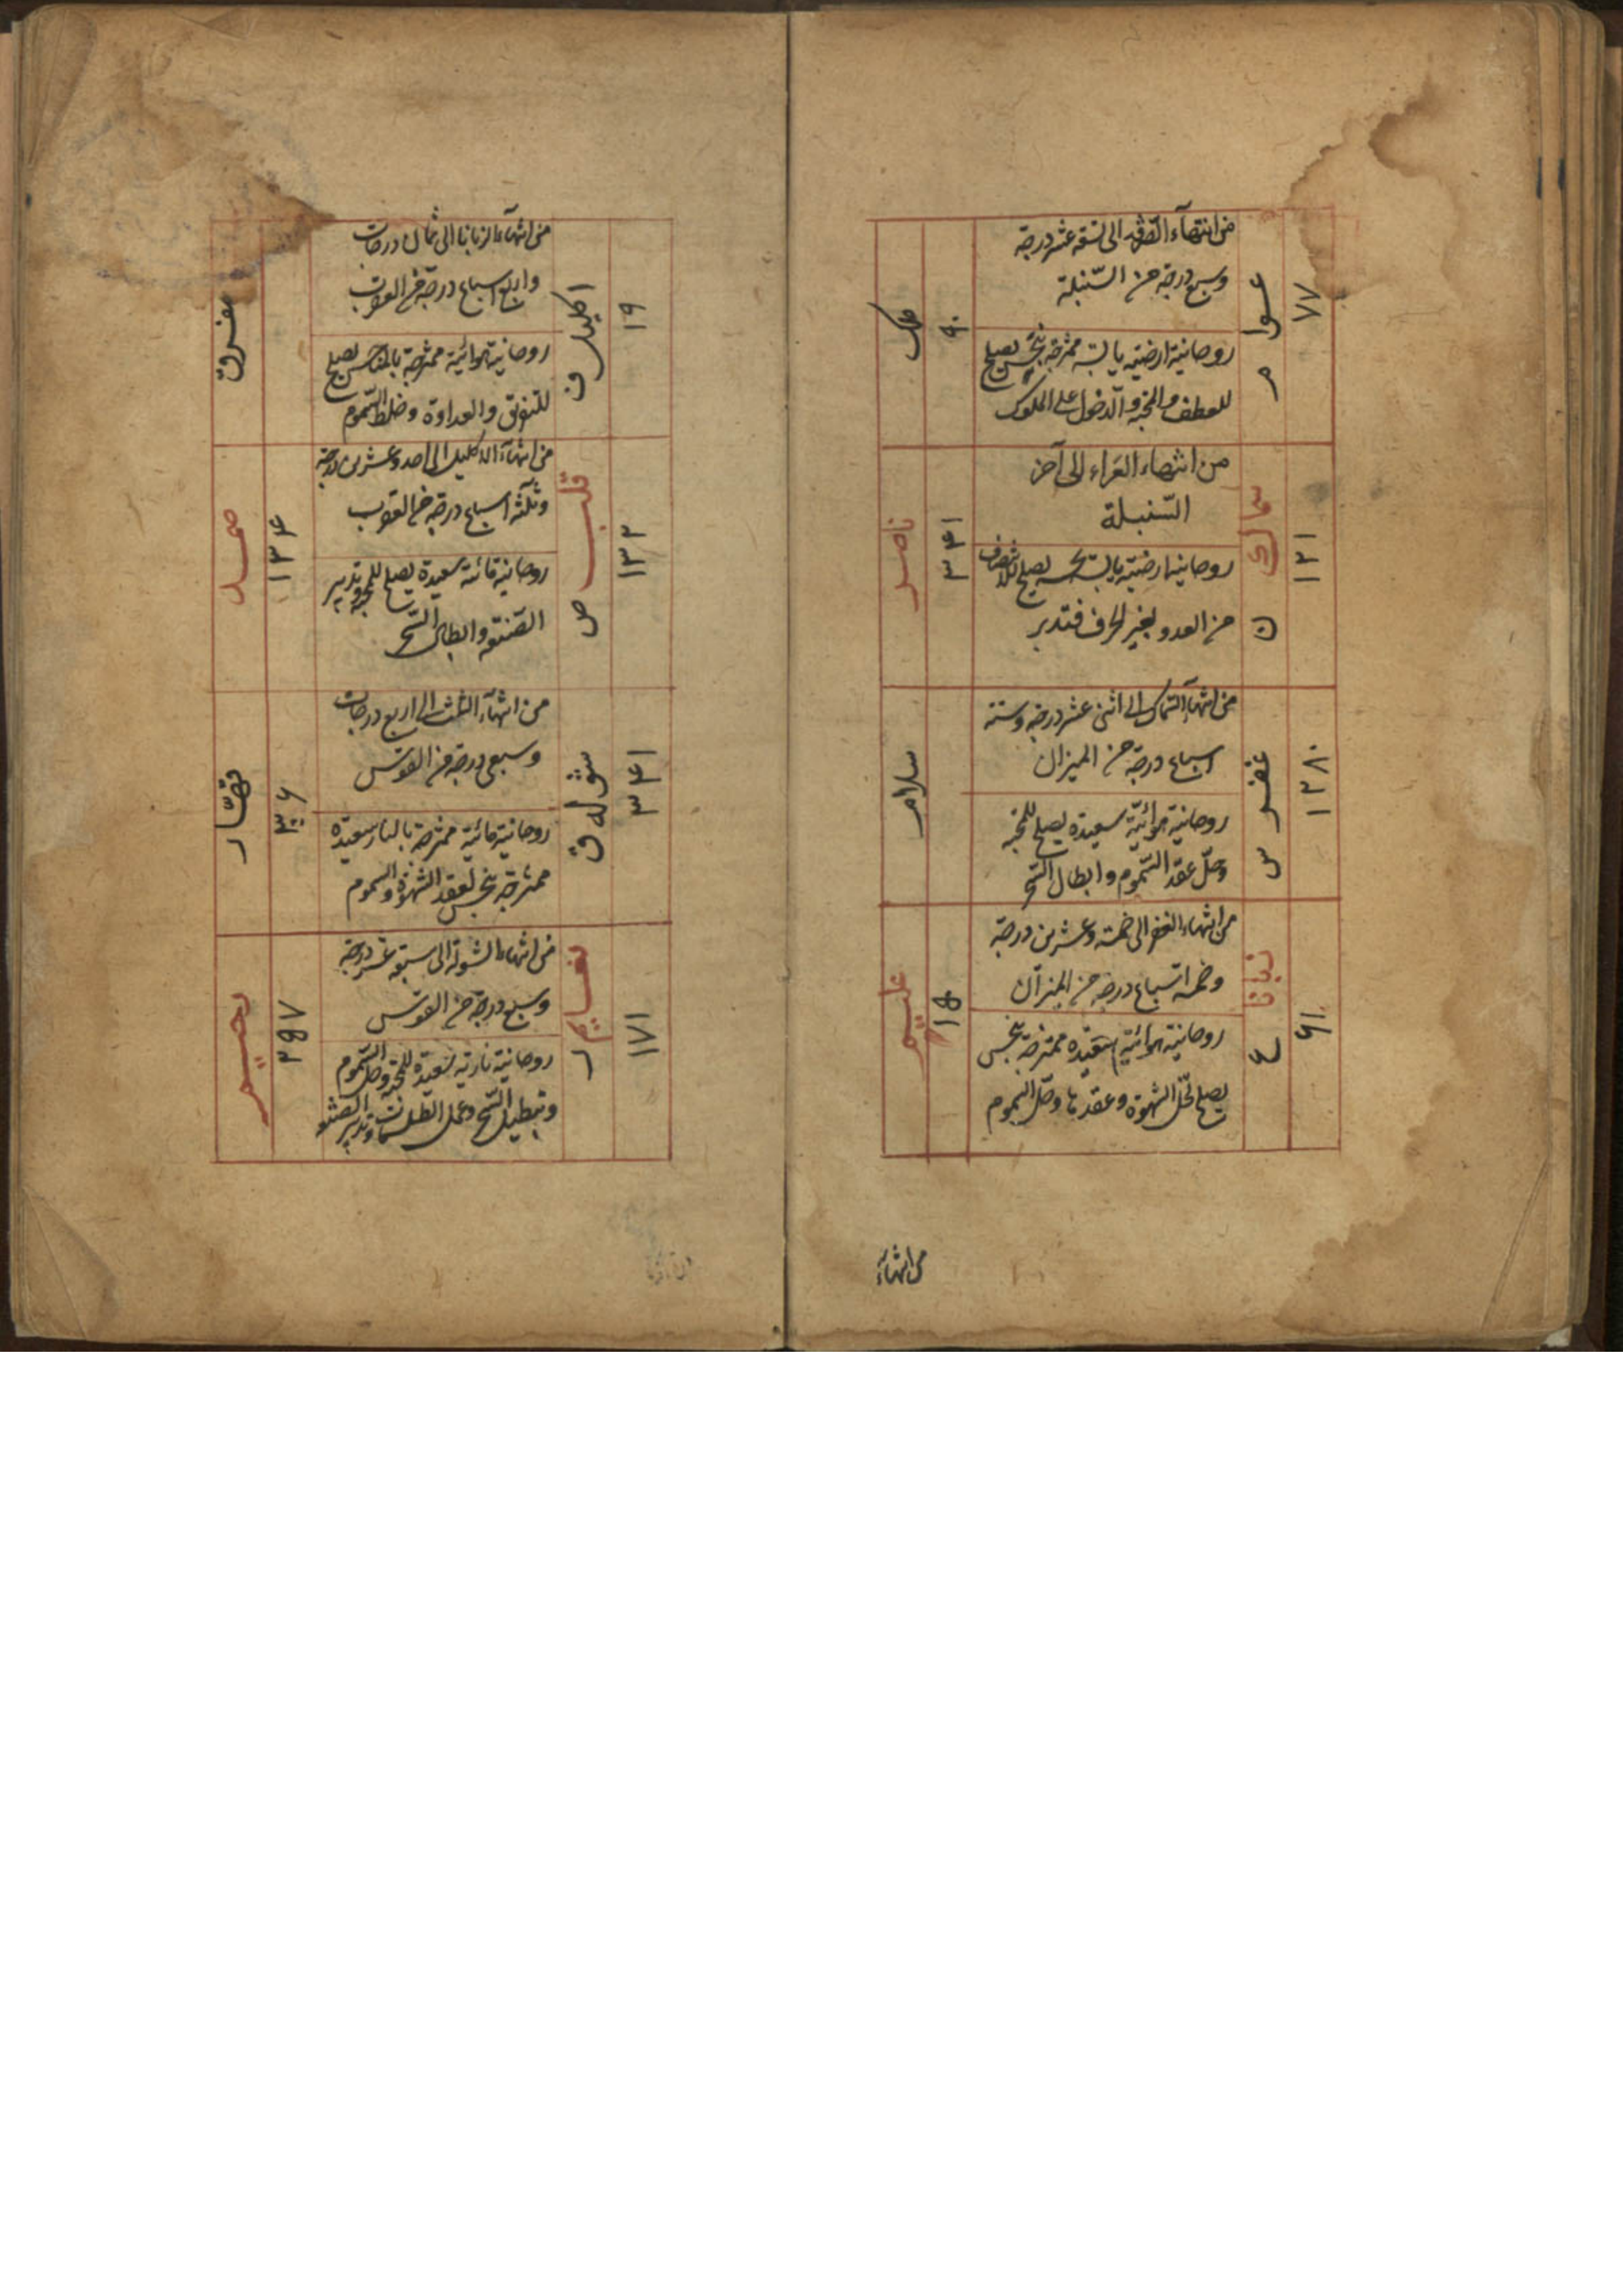 ٧٧
عوا م
من انتهاء الصرفه الى تسعة عشر درجة
وسبع درجة من السنبلة
روحانية ارضية يابسة ممتزجة بنحس يصلح
للعطف والمحبة والدخول على الملوك
٩٠
ملك
١٢١
سماك ن
من انتهاء العواء الى آخر
السنبلة
روحانية ارضية يابسة نحسة يصلح
من العدو لخير الحرف فتدبر
٣٤١
ناصر
١٢٨٠
غفر س
من انتهاء السماك الى اثنى عشر درجة وستة
اسباع درجة من الميزان
روحانية هوائية سعيدة يصلح للمحبة
وحل عقد السموم وابطال السحر
سلام
٦١
زبانا ع
من انتهاء الغفر الى خمسة وعشرين درجة
وخمسة اسباع درجة من الميزان
روحانية هوائية سعيدة ممتزجة بنحس
يصلح لحل الشهوة وعقدها وحل السموم
١٥
عليم
من انتهاء
١٩
اكليل ف
من انتهاء الزبانا الى ثمان درجات
واربع اسباع درجة من العقرب
روحانية هوائية ممتزجة بالنحس يصلح
للتفرق والعداوة وخلط السموم
مفرق
١٣٢
قلب ص
من انتهاء الاكليل الى احد وعشرين درجة
وثلثة اسباع درجة من العقرب
روحانية مائية سعيدة يصلح للمحبة وتدبير
الصنعة وابطال السحر
١٣٤
صمد
٣٤١
شوله ق
من انتهاء الى اربع درجات
وسبعى درجة من القوس
روحانية مائية ممتزجة بالنار سعيدة
ممتزجة بنحس لعقد الشهوة والسموم
٣٠٦
قهار
١٧١
نعايم ر
من انتهاء الشولة الى سبعة عشر درجة
وسبع درجة من القوس
روحانية نارية سعيدة للمحبة وحل السموم
وتبطيل السحر وعمل الطلسمات وتدبير الصنعة
٢٥٧